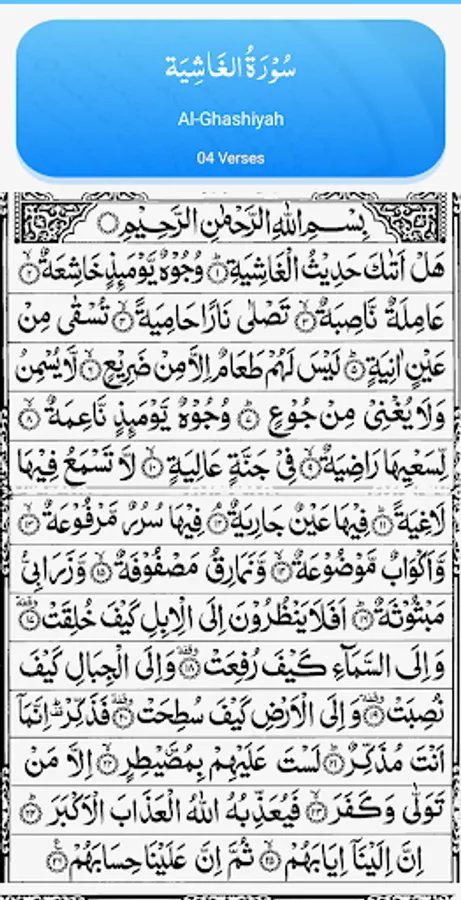 سُوْرَةُ الغَاشِيَة
Al-Ghashiyah
04 Verses
بِسْمِ اللهِ الرَّحْمٰنِ الرَّحِيْمِ
هَلْ اَتٰىكَ حَدِيْثُ الْغَاشِيَةِ ۝١ وُجُوْهٌ يَّوْمَىِٕذٍ خَاشِعَةٌ ۝٢
عَامِلَةٌ نَّاصِبَةٌ ۝٣ تَصْلٰى نَارًا حَامِيَةً ۝٤ تُسْقٰى مِنْ
عَيْنٍ اٰنِيَةٍ ۝٥ لَيْسَ لَهُمْ طَعَامٌ اِلَّا مِنْ ضَرِيْعٍ ۝٦ لَّا يُسْمِنُ
وَلَا يُغْنِىْ مِنْ جُوْعٍ ۝٧ وُجُوْهٌ يَّوْمَىِٕذٍ نَّاعِمَةٌ ۝٨
لِّسَعْيِهَا رَاضِيَةٌ ۝٩ فِىْ جَنَّةٍ عَالِيَةٍ ۝١٠ لَّا تَسْمَعُ فِيْهَا
لَاغِيَةً ۝١١ فِيْهَا عَيْنٌ جَارِيَةٌ ۝١٢ فِيْهَا سُرُرٌ مَّرْفُوْعَةٌ ۝١٣
وَّاَكْوَابٌ مَّوْضُوْعَةٌ ۝١٤ وَّنَمَارِقُ مَصْفُوْفَةٌ ۝١٥ وَّزَرَابِىُّ
مَبْثُوْثَةٌ ۝١٦ اَفَلَا يَنْظُرُوْنَ اِلَى الْاِبِلِ كَيْفَ خُلِقَتْ ۝١٧
وَاِلَى السَّمَآءِ كَيْفَ رُفِعَتْ ۝١٨ وَاِلَى الْجِبَالِ كَيْفَ
نُصِبَتْ ۝١٩ وَاِلَى الْاَرْضِ كَيْفَ سُطِحَتْ ۝٢٠ فَذَكِّرْ اِنَّمَآ
اَنْتَ مُذَكِّرٌ ۝٢١ لَسْتَ عَلَيْهِمْ بِمُصَۜيْطِرٍ ۝٢٢ اِلَّا مَنْ
تَوَلّٰى وَكَفَرَ ۝٢٣ فَيُعَذِّبُهُ اللهُ الْعَذَابَ الْاَكْبَرَ ۝٢٤
اِنَّ اِلَيْنَآ اِيَابَهُمْ ۝٢٥ ثُمَّ اِنَّ عَلَيْنَا حِسَابَهُمْ ۝٢٦